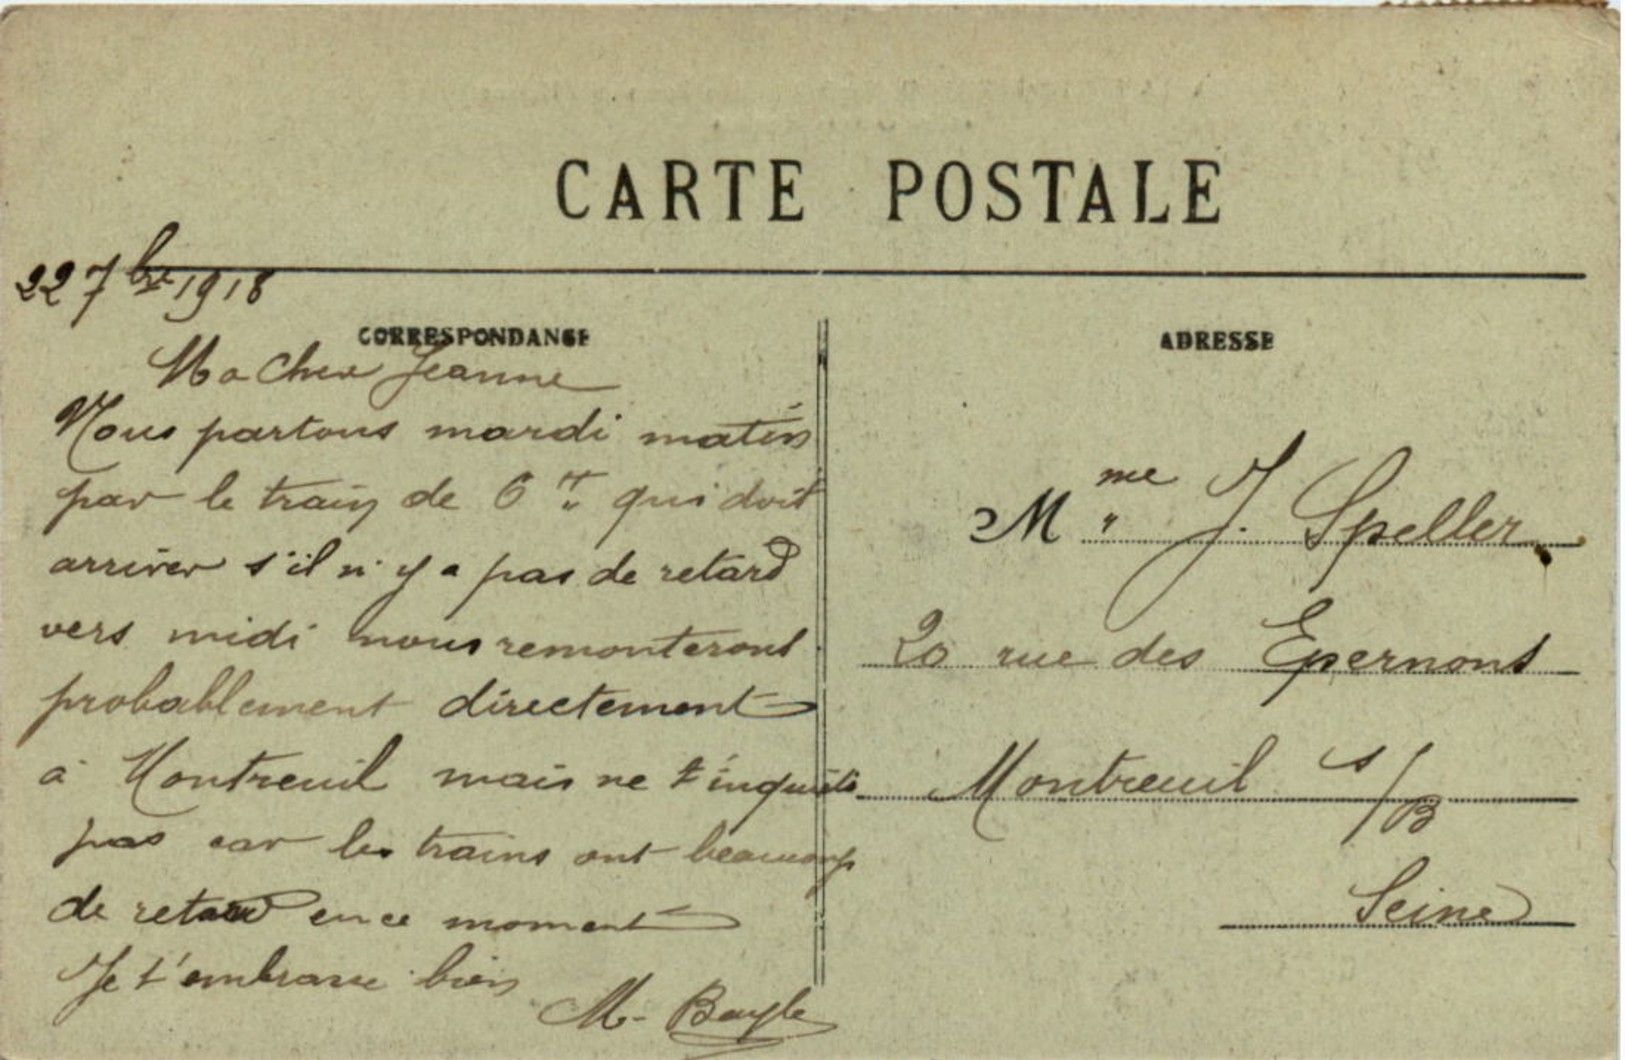 CARTE POSTALE
22 7bre 1918
CORRESPONDANCE
Ma cher Jeanne
Nous partons mardi matin
par le train de 6 H qui doit
arriver s'il n'y a pas de retard
vers midi nous remonterons
probablement directement
à Montreuil mais ne t'inquiète
pas car les trains ont beaucoup
de retard en ce moment
Je t'embrasse bien
M. Bayle
ADRESSE
Mme J. Speller
20 rue des Epernons
Montreuil s/B
Seine